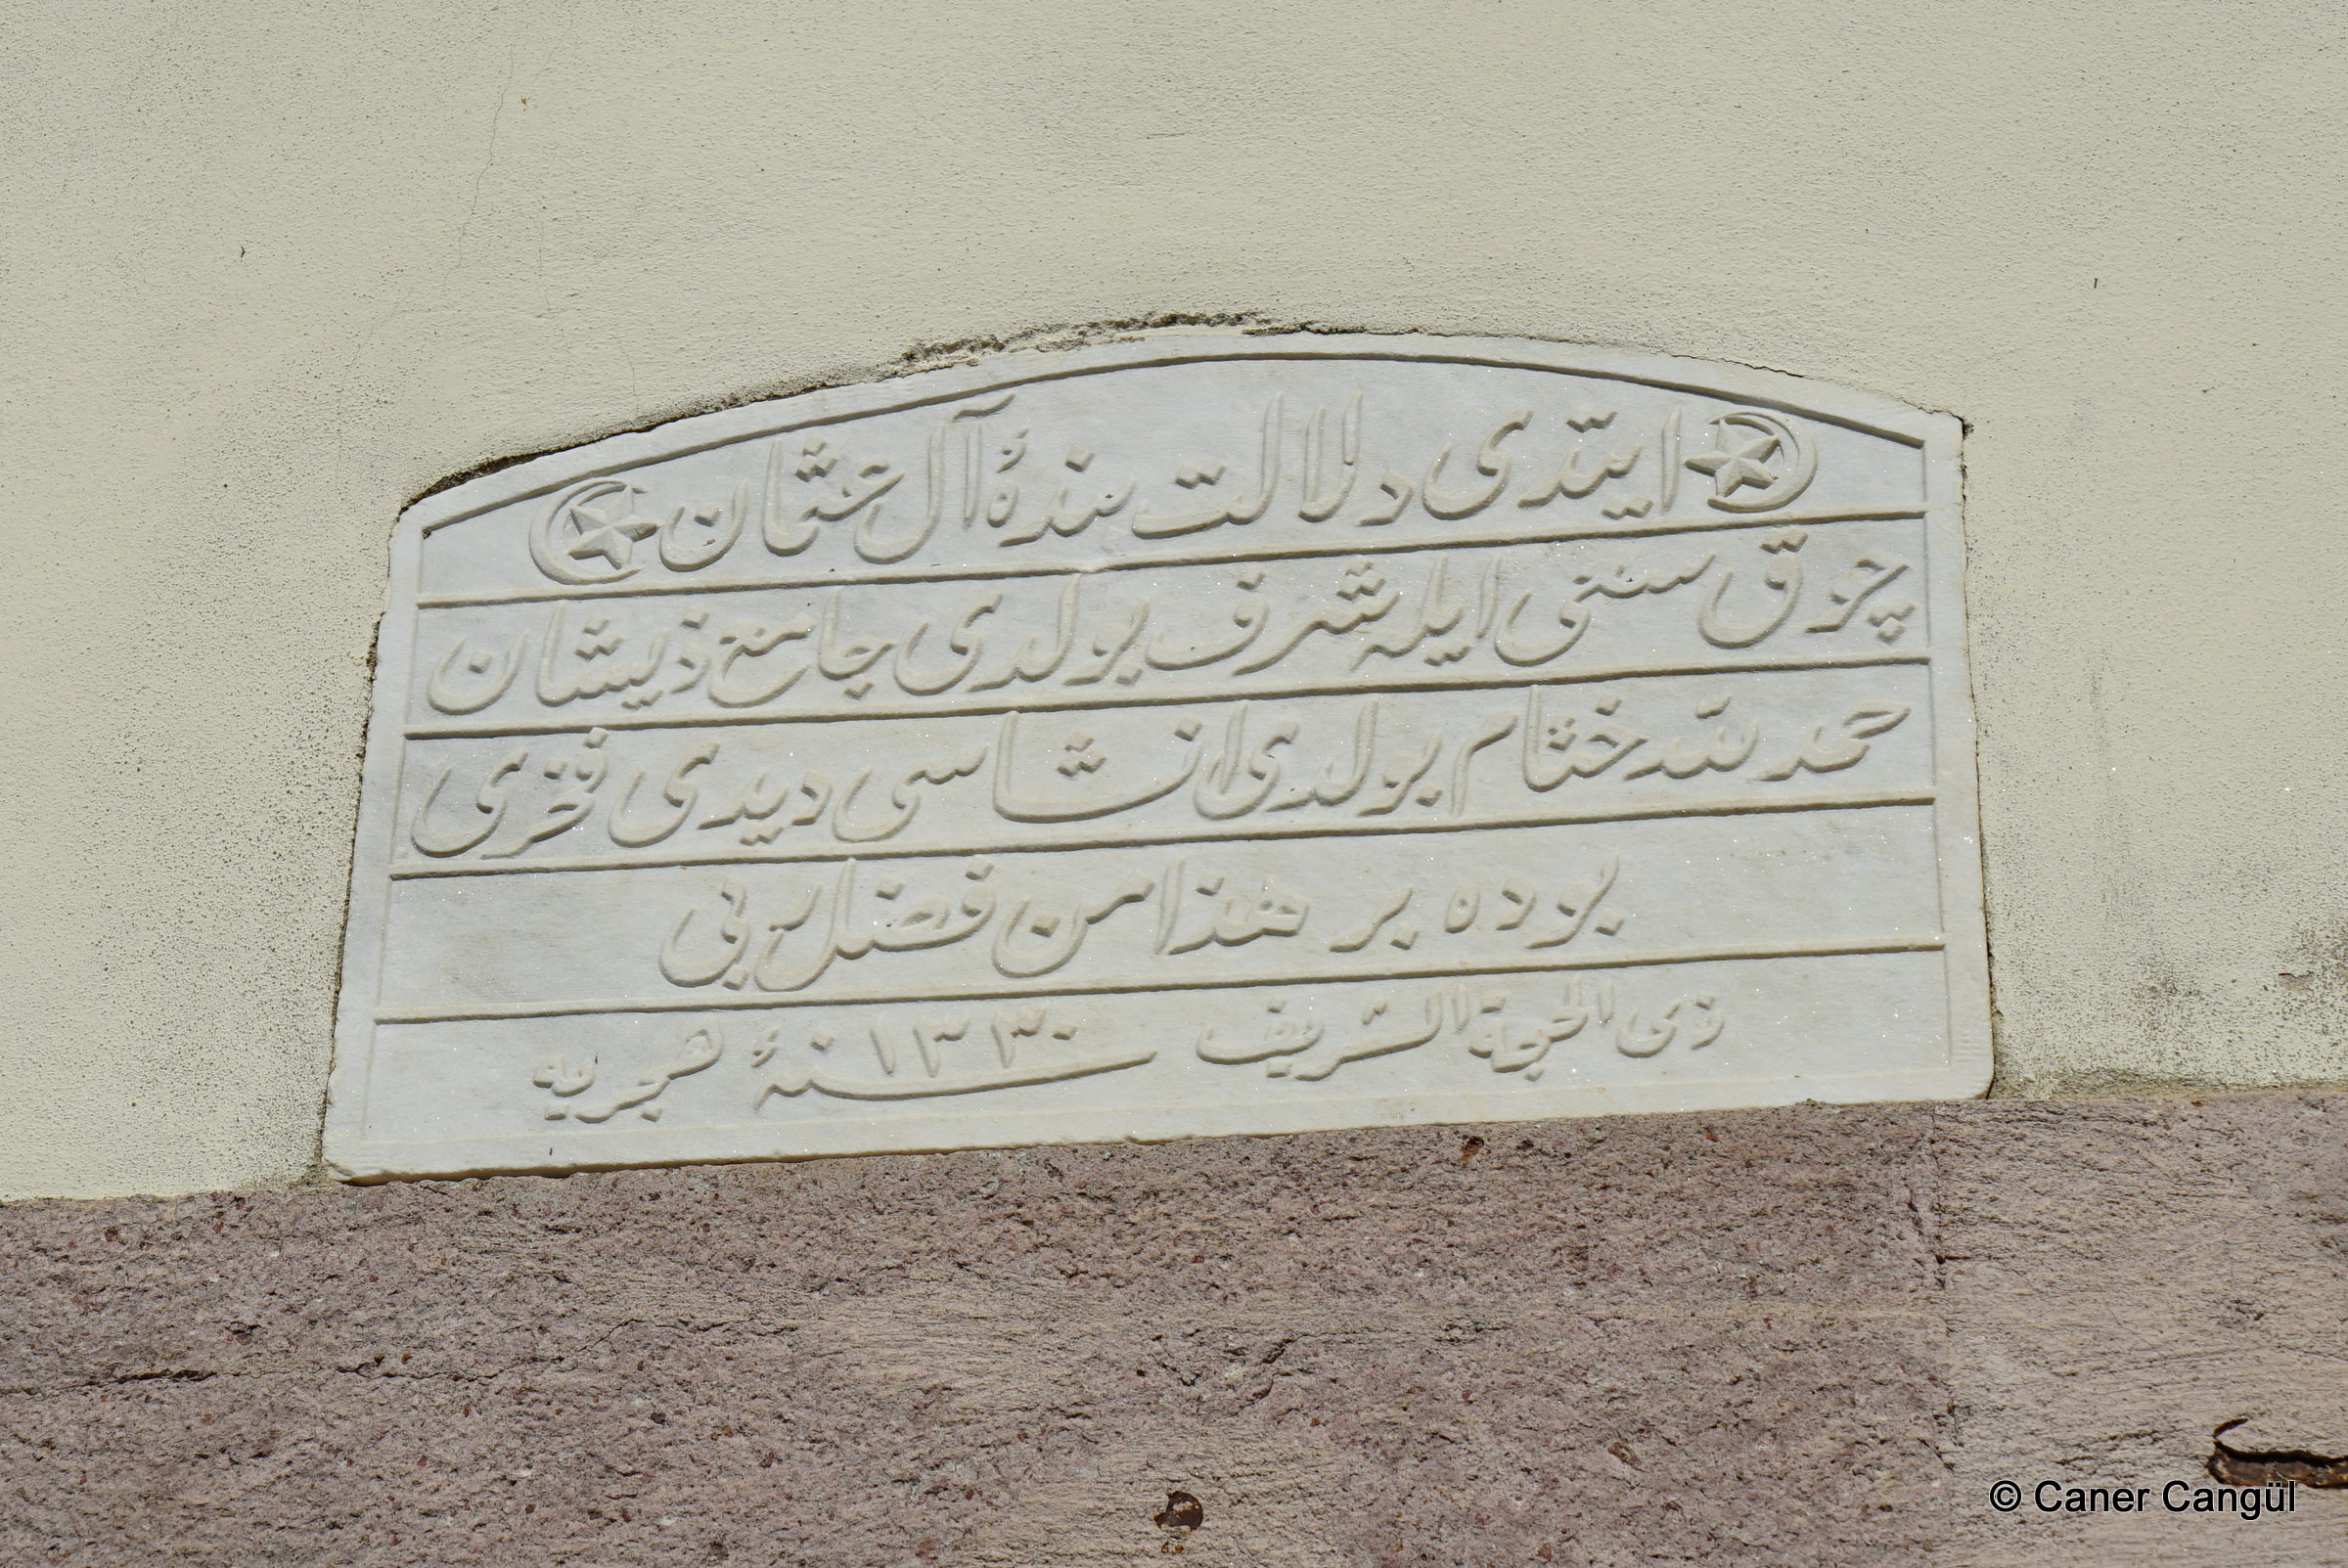 ايتدى دلالت بندۀ آل عثمان
چوق سنى ايله شرف بولدى جامع ذيشان
حمد لله ختام بولدى انشاسى ديدى فخرى
بوده بر هذا من فضل ربى
ذى الحجة الشريف سنۀ ١٣٣٠ هجريه
© Caner Cangül